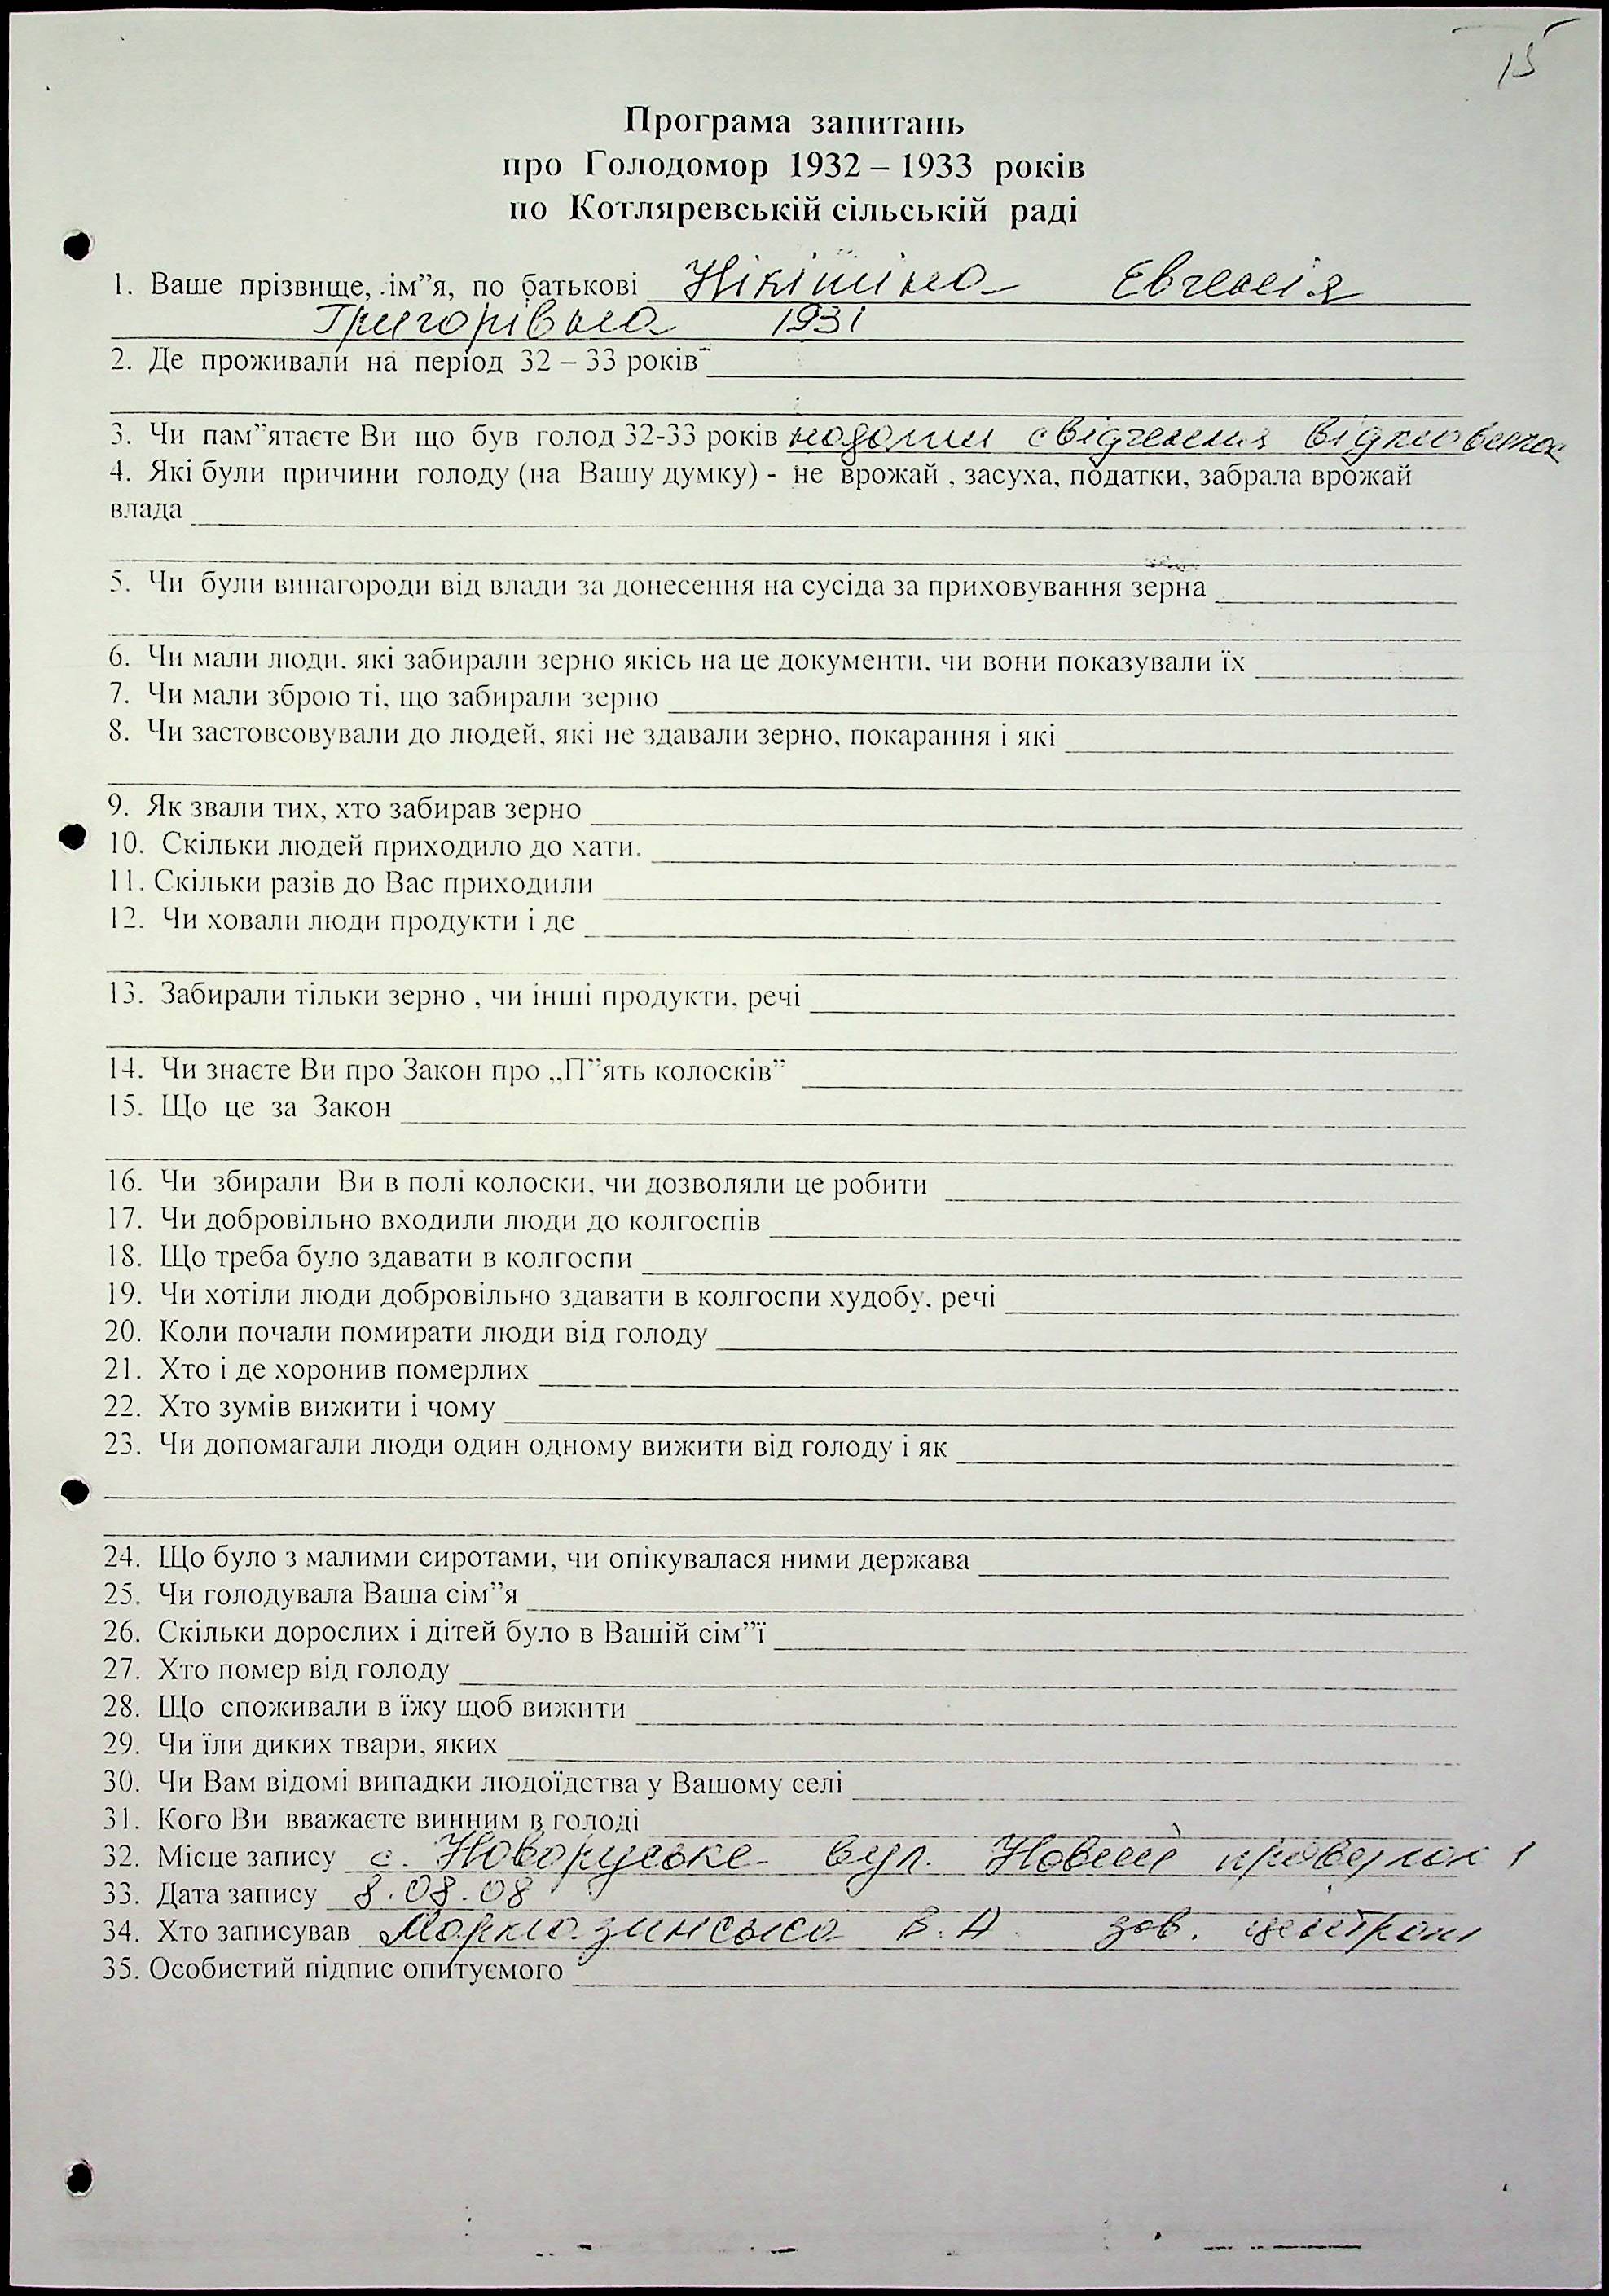 15
Програма запитань
про Голодомор 1932 – 1933 років
по Котляревській сільській раді
1. Ваше прізвище, ім"я, по батькові Нікітіна Евгенія
Григорівна 1931
2. Де проживали на період 32 – 33 років
3. Чи пам"ятаєте Ви що був голод 32-33 років надати свідчення відмовилас
4. Які були причини голоду (на Вашу думку) - не врожай , засуха, податки, забрала врожай
влада
5. Чи були винагороди від влади за донесення на сусіда за приховування зерна
6. Чи мали люди, які забирали зерно якісь на це документи, чи вони показували їх
7. Чи мали зброю ті, що забирали зерно
8. Чи застовсовували до людей, які не здавали зерно, покарання і які
9. Як звали тих, хто забирав зерно
10. Скільки людей приходило до хати.
11. Скільки разів до Вас приходили
12. Чи ховали люди продукти і де
13. Забирали тільки зерно , чи інші продукти, речі
14. Чи знаєте Ви про Закон про „П"ять колосків"
15. Що це за Закон
16. Чи збирали Ви в полі колоски, чи дозволяли це робити
17. Чи добровільно входили люди до колгоспів
18. Що треба було здавати в колгоспи
19. Чи хотіли люди добровільно здавати в колгоспи худобу, речі
20. Коли почали помирати люди від голоду
21. Хто і де хоронив померлих
22. Хто зумів вижити і чому
23. Чи допомагали люди один одному вижити від голоду і як
24. Що було з малими сиротами, чи опікувалася ними держава
25. Чи голодувала Ваша сім"я
26. Скільки дорослих і дітей було в Вашій сім"ї
27. Хто помер від голоду
28. Що споживали в їжу щоб вижити
29. Чи їли диких твари, яких
30. Чи Вам відомі випадки людоїдства у Вашому селі
31. Кого Ви вважаєте винним в голоді
32. Місце запису с. Новоруське вул. Новий провулок 1
33. Дата запису 8.08.08
34. Хто записував В. А. зав.
35. Особистий підпис опитуємого